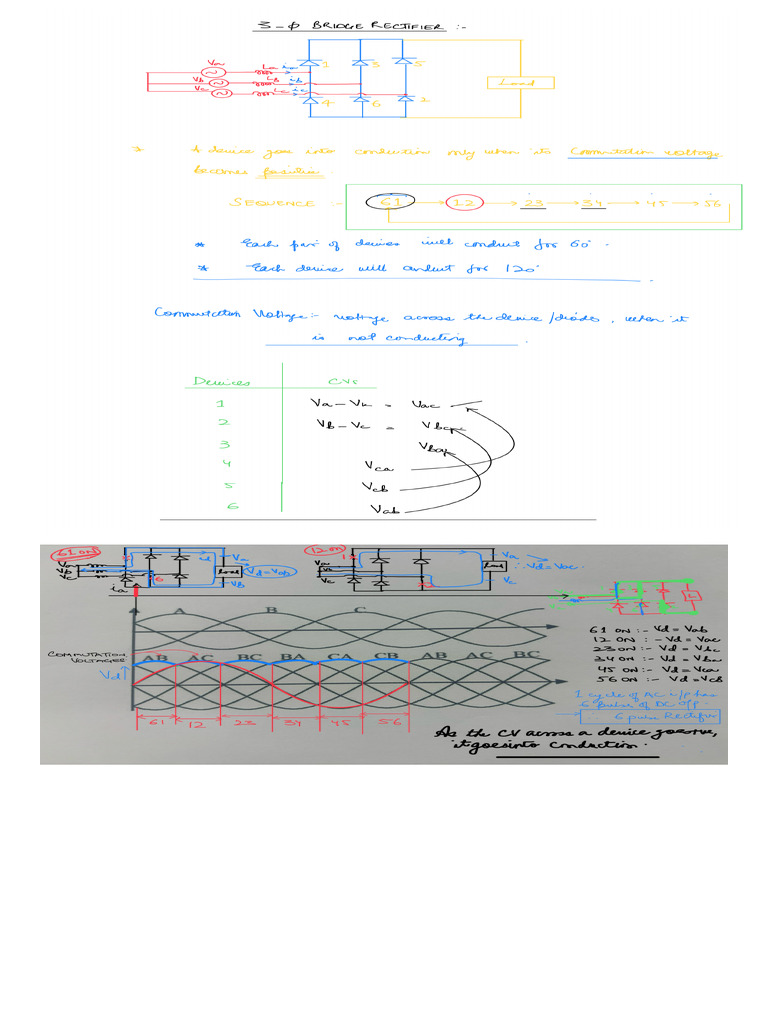 3-φ BRIDGE RECTIFIER :-
Va La ia 1 3 5
Vb Lb ib
Vc Lc ic
4 6 2
Load
* A device goes into conduction only when its Commutation voltage
becomes positive.
SEQUENCE :- 61 → 12 → 23 → 34 → 45 → 56
* Each pair of devices will conduct for 60°.
* Each device will conduct for 120°.
Commutation Voltage:- voltage across the device/diode, when it
is not conducting.
Devices CVs
1 Va-Vc = Vac
2 Vb-Vc = Vbc
3 Vba
4 Vca
5 Vcb
6 Vab
61 ON
Va
Vb
Vc
6
id
Va
Load Vd=Vab
VB
ia
12 ON
1
Va
Vb
Vc
Load
Va
∴ Vd=Vac.
Vc
L
A B C
COMMUTATION
VOLTAGES
AB AC BC BA CA CB AB AC BC
Vd
61 12 23 34 45 56
61 ON :- Vd = Vab
12 ON :- Vd = Vac
23 ON :- Vd = Vbc
34 ON :- Vd = Vba
45 ON :- Vd = Vca
56 ON :- Vd = Vcb
1 cycle of AC i/p has
6 pulses of DC o/p.
6 pulse Rectifier
As the CV across a device goes +ve,
it goes into conduction.